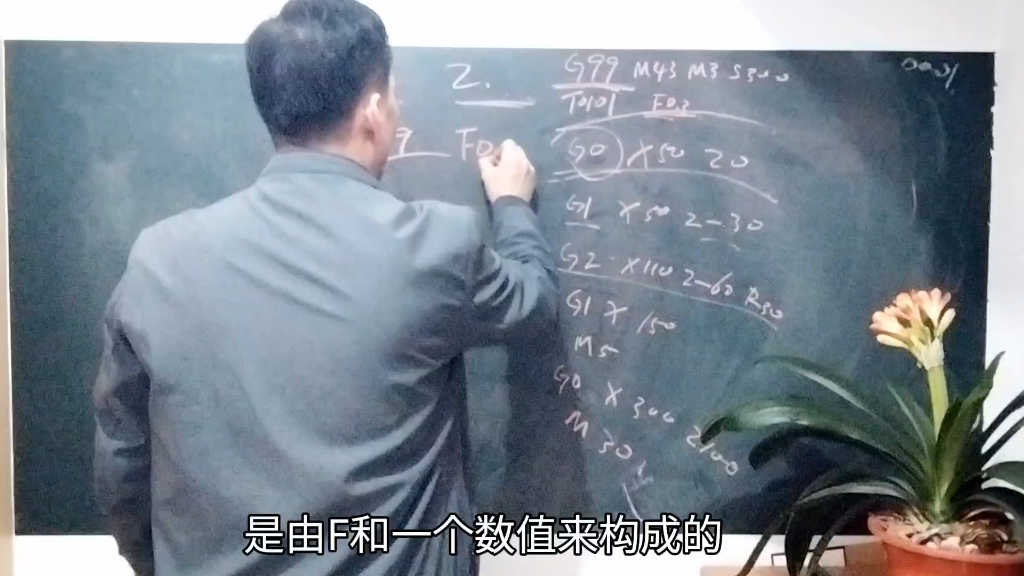 2.
9 F0
G99 M43 M3 S300
T0101 F0.2
G0 X50 Z0
G1 X50 Z-30
G2 X110 Z-60 R30
G1 X150
M5
G0 X300 Z100
M30
0001
是由F和一个数值来构成的